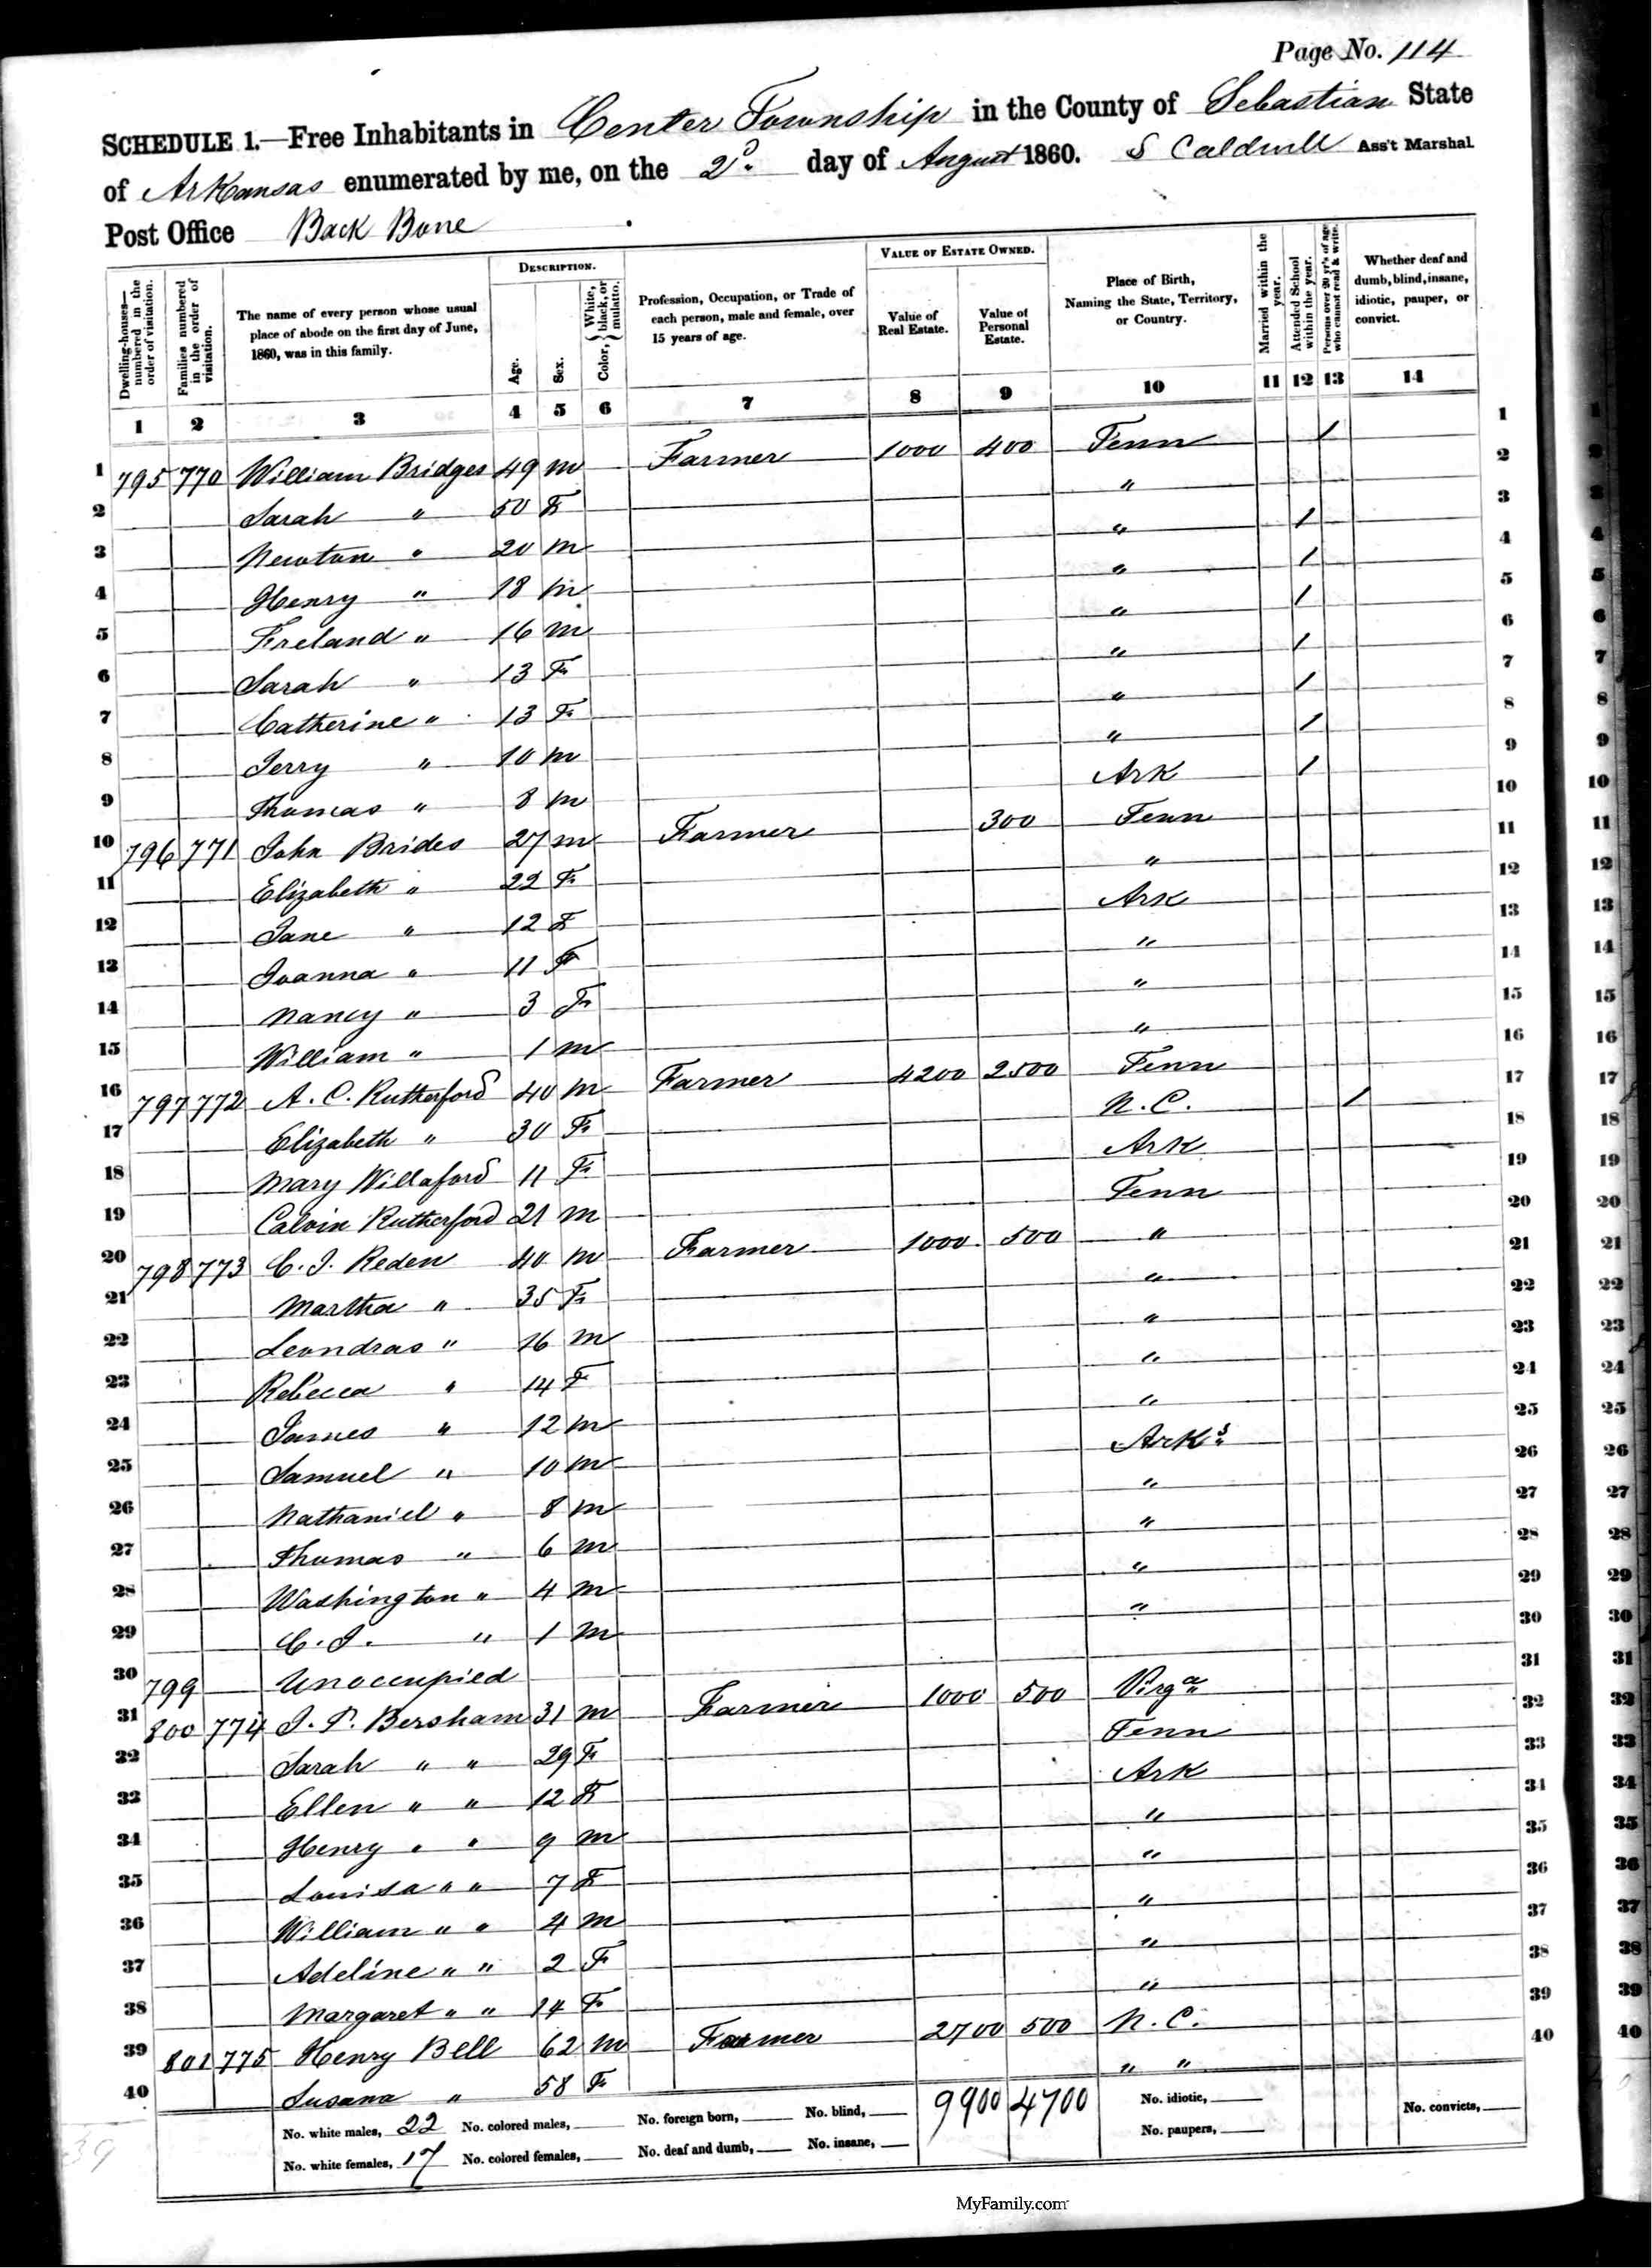 Page No. 114
SCHEDULE 1.—Free Inhabitants in Center Township in the County of Sebastian State
of Arkansas enumerated by me, on the 2d. day of August 1860. S Caldwell Ass't Marshal
Post Office Back Bone
DESCRIPTION. VALUE OF ESTATE OWNED.
Dwelling-houses—numbered in the order of visitation.
Families numbered in the order of visitation.
The name of every person whose usual place of abode on the first day of June, 1860, was in this family.
Age.
Sex.
Color, { White, black, or mulatto.
Profession, Occupation, or Trade of each person, male and female, over 15 years of age.
Value of Real Estate.
Value of Personal Estate.
Place of Birth, Naming the State, Territory, or Country.
Married within the year.
Attended School within the year.
Persons over 20 yr's of age who cannot read & write.
Whether deaf and dumb, blind, insane, idiotic, pauper, or convict.
1 2 3 4 5 6 7 8 9 10 11 12 13 14
1 795 770 William Bridges 49 m Farmer 1000 400 Tenn / 1
2 Sarah " 50 F " 2
3 Newton " 20 m " / 3
4 Henry " 18 m " / 4
5 Freland " 16 m " / 5
6 Sarah " 13 F " / 6
7 Catherine " 13 F " / 7
8 Jerry " 10 m " / 8
9 Thomas " 8 m Ark / 9
10 796 771 John Brides 27 m Farmer 300 Tenn 10
11 Elizabeth " 22 F " 11
12 Jane " 12 F Ark 12
13 Joanna " 11 F " 13
14 Nancy " 3 F " 14
15 William " 1 m " 15
16 797 772 A. C. Rutherford 40 m Farmer 4200 2500 Tenn 16
17 Elizabeth " 30 F N. C. / 17
18 Mary Willaford 11 F Ark 18
19 Calvin Rutherford 21 m Tenn 19
20 798 773 C. J. Reden 40 m Farmer 1000 500 " 20
21 Martha " 35 F " 21
22 Leondras " 16 m " 22
23 Rebecca " 14 F " 23
24 James " 12 m " 24
25 Samuel " 10 m Arks 25
26 Nathaniel " 8 m " 26
27 Thomas " 6 m " 27
28 Washington " 4 m " 28
29 C. J. " 1 m " 29
30 799 Unoccupied 30
31 800 774 J. P. Bersham 31 m Farmer 1000 500 Virga 31
32 Sarah " " 29 F Tenn 32
33 Ellen " " 12 F Ark 33
34 Henry " " 9 m " 34
35 Louisa " " 7 F " 35
36 William " " 4 m " 36
37 Adeline " " 2 F " 37
38 Margaret " " 14 F " 38
39 801 775 Henry Bell 62 m Farmer 2700 500 N. C. 39
40 Susana " 58 F " " 40
No. white males, 22 No. colored males, No. foreign born, No. blind, 9900 4700 No. idiotic, No. convicts,
No. white females, 17 No. colored females, No. deaf and dumb, No. insane, No. paupers,
39
MyFamily.com